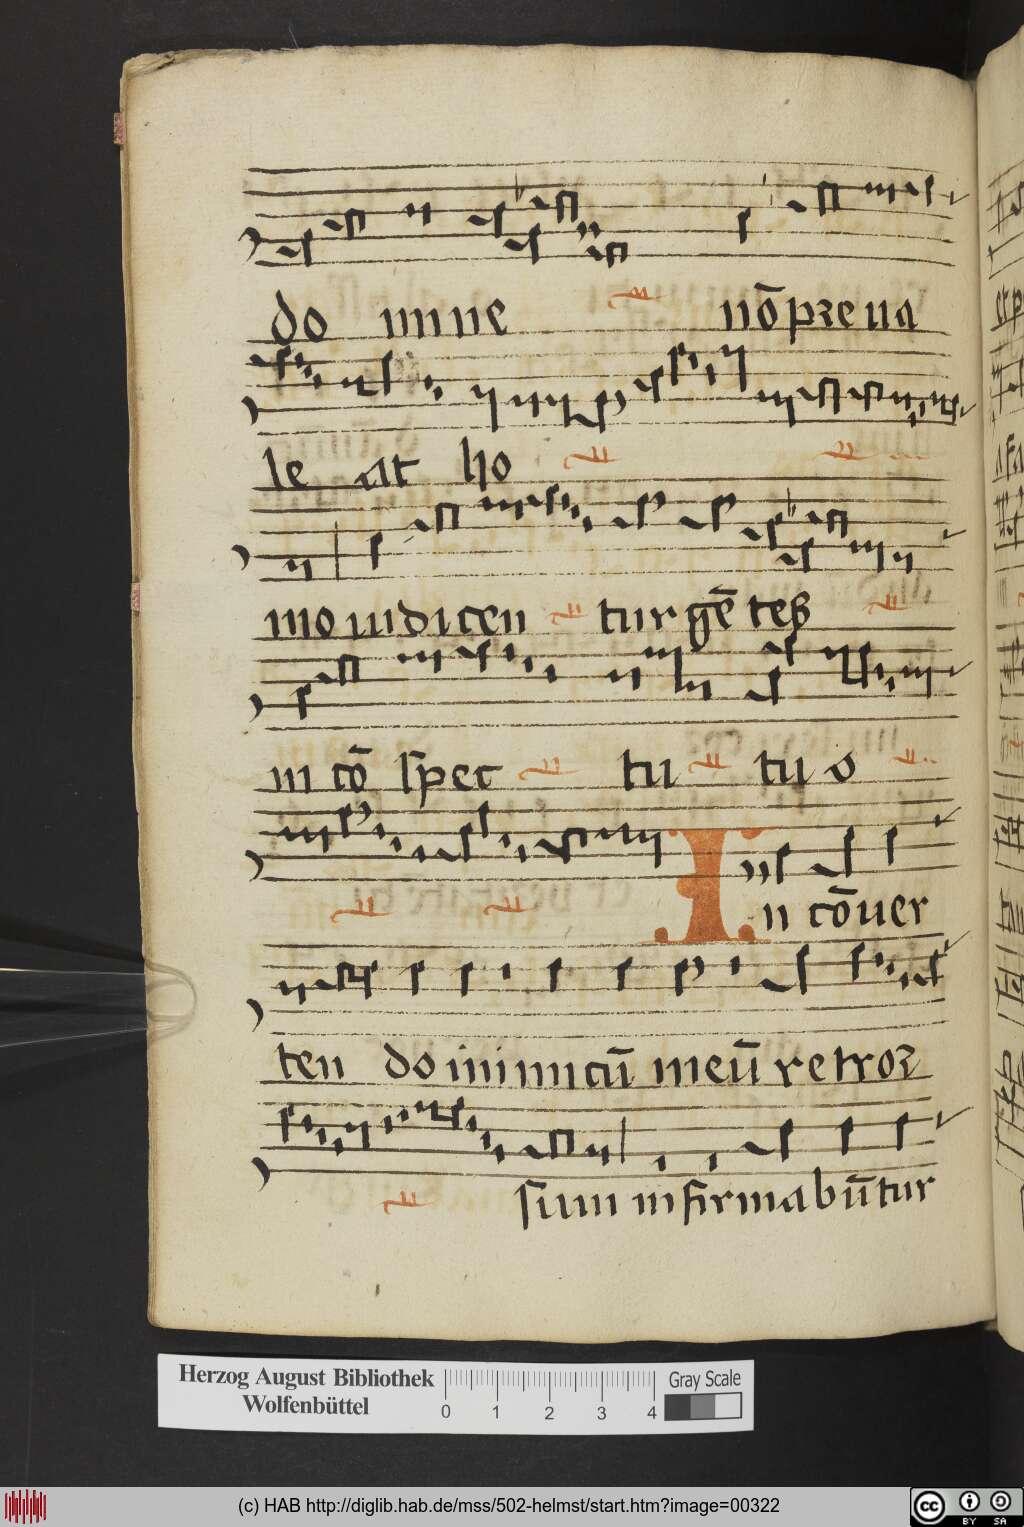 do mine nō preua
le at ho
mo iudicen tur gē tes
in cō spec tu tuo
In cōuer
ten do inimicū meū retror
sum infirmabūtur
Herzog August Bibliothek
Wolfenbüttel
0 1 2 3 4
Gray Scale
(c) HAB http://diglib.hab.de/mss/502-helmst/start.htm?image=00322
cc BY SA